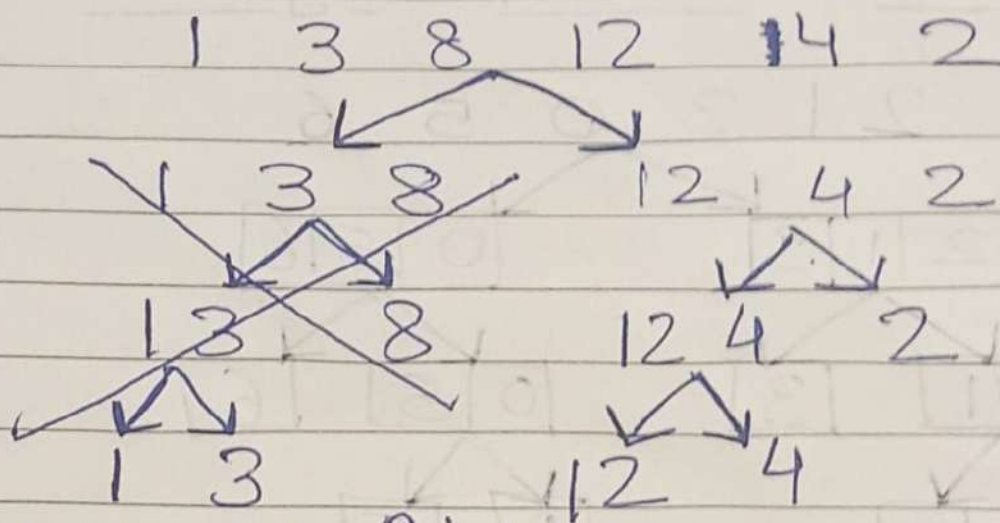 1 3 8 12 4 2
1 3 8 12 4 2
1 3 8 12 4 2
1 3 12 4